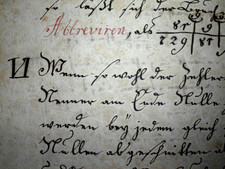 so läßt sich der Bruch
Abbreviren, als 81 | 9
729 | 81
VI Wenn so wohl der Zehler
Nenner am Ende Nulle
werden bey jedem gleich
Nullen abgeschnitten a